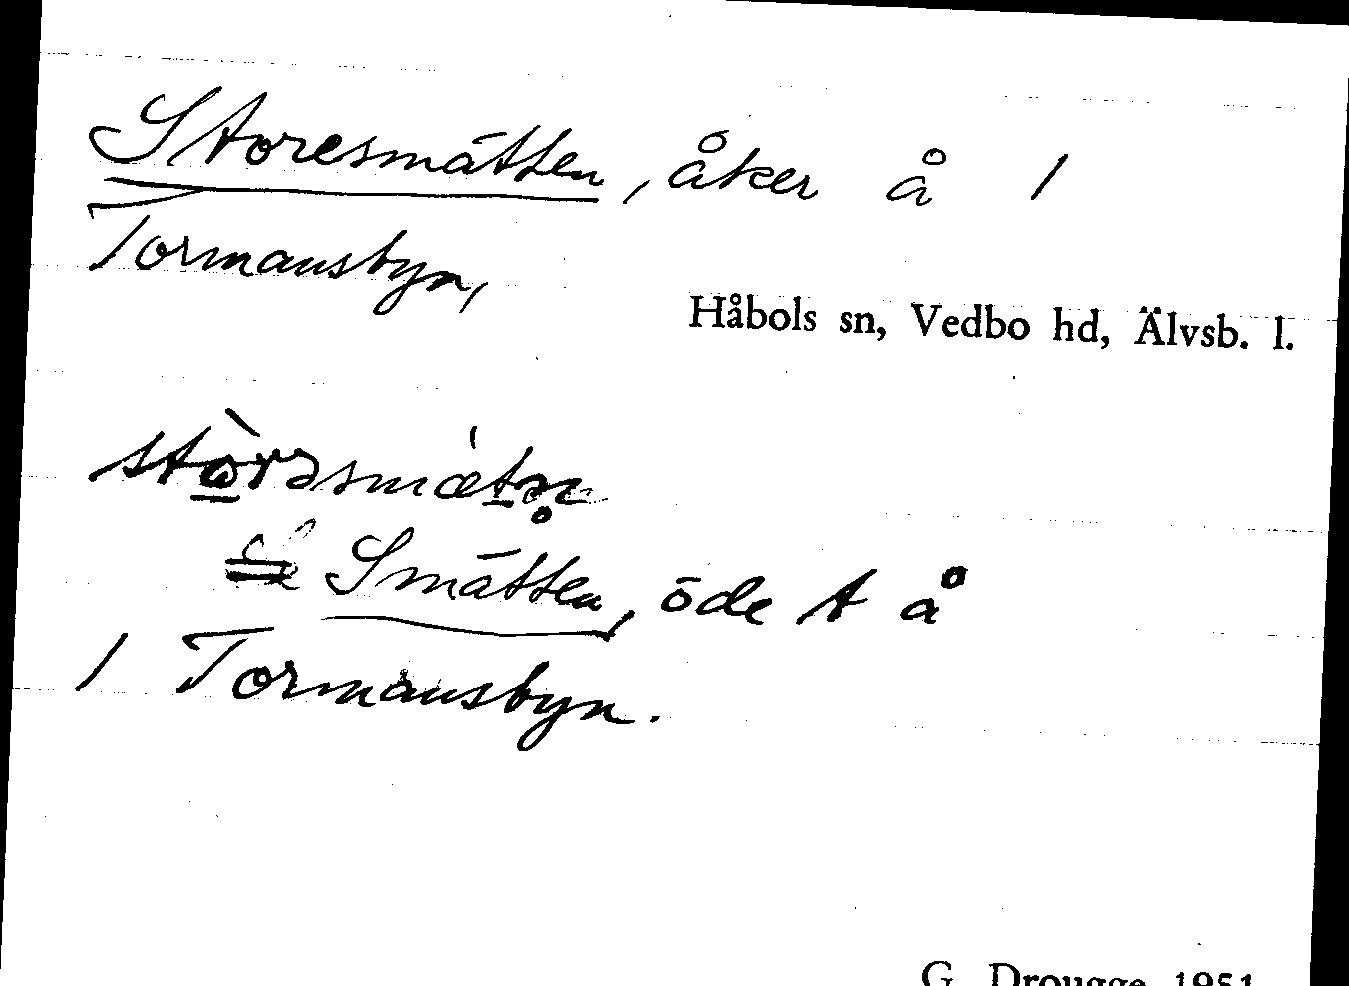 Storesmätten, åker å 1
Tormansbyn,
Håbols sn, Vedbo hd, Älvsb. l.
stòrəsmætn̥
Smätten, öde t å
1 Tormansbyn.
G. Drougge 1951